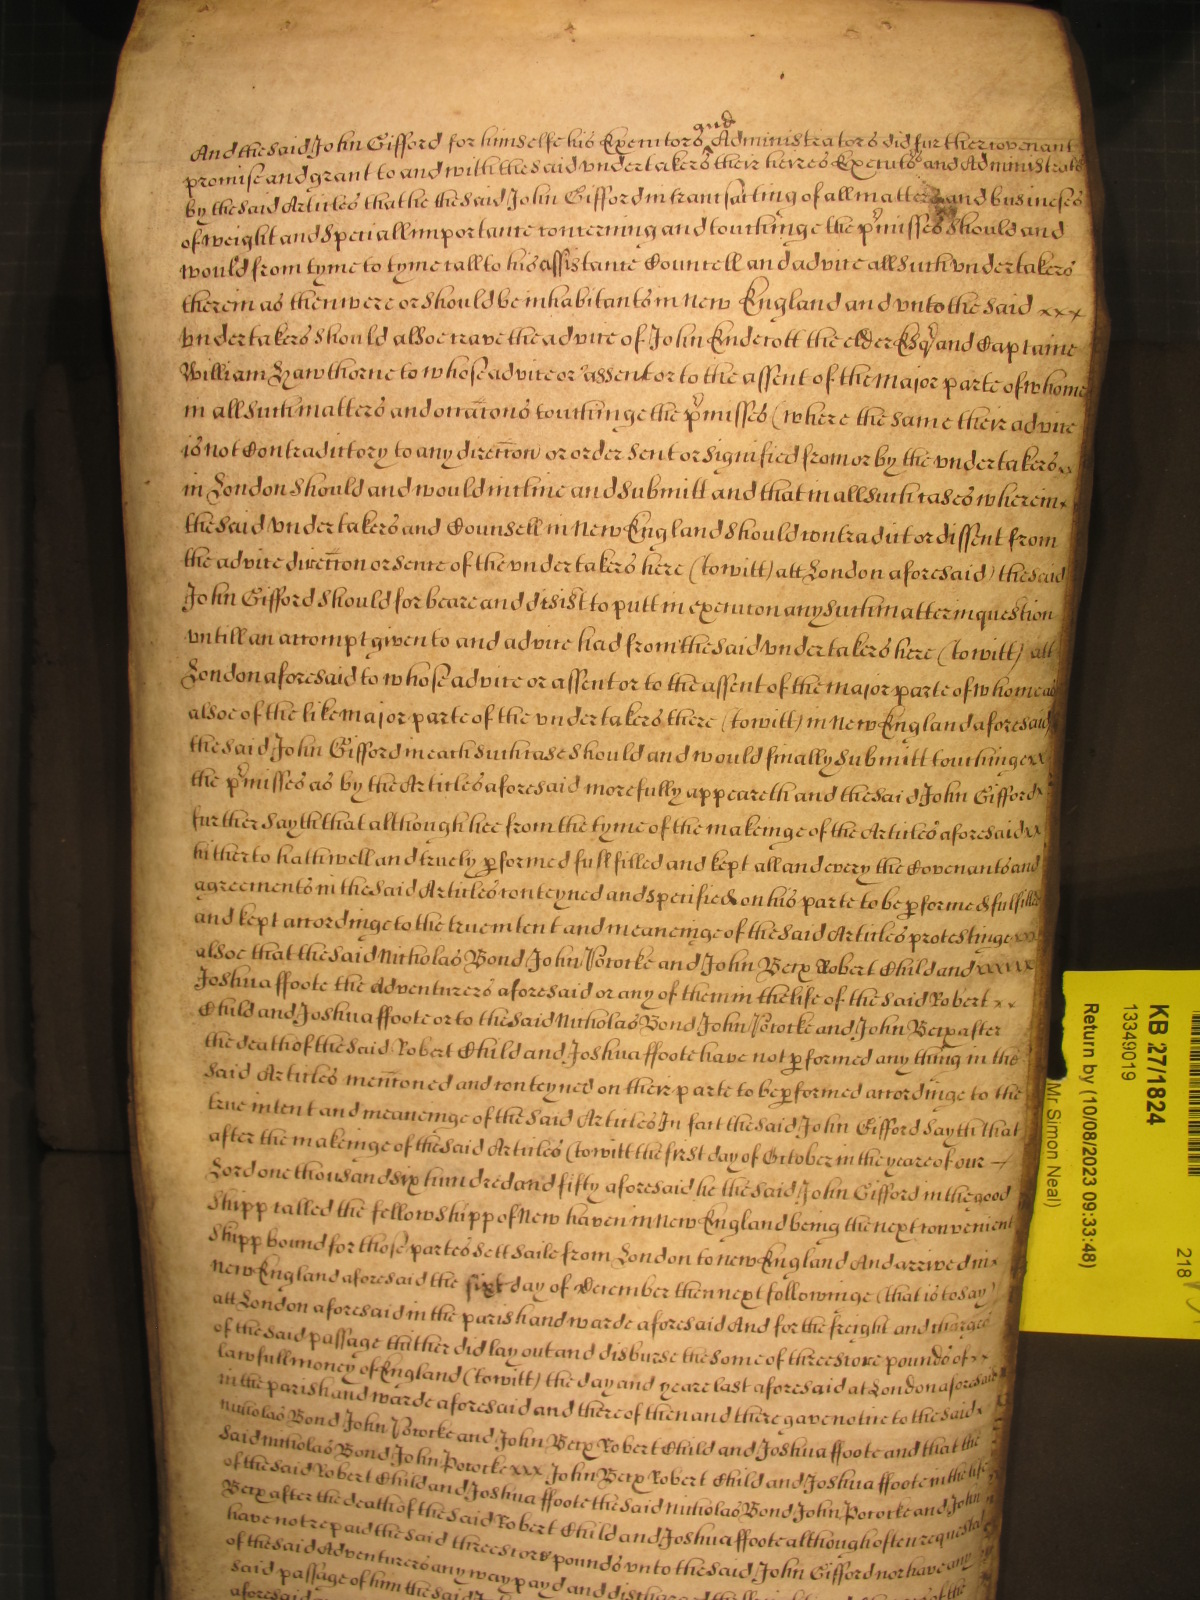 And the said John Gifford for himselfe his Executors and Administrators did further covenant
promise and grant to and with the said undertakers their heires Executors and Administrators
by the said Articles that he the said John Gifford in transacting of all matters and busineses
of weight and speciall importance concerning and touchinge the p'misses should and
would from tyme to tyme call to his assistance Councell and advice all such undertakers
therein as then were or should be inhabitants in New England and vnto the said xxx
vndertakers should alsoe crave the advice of John Endecott the elder Esqr and Captaine
William Hawthorne to whose advice or assent or to the assent of the major parte of whome
in all such matters and occac̄ons touchinge the p'misses (where the same their advice
is not Contradictory to any direcc̄on or order sent or signified from or by the vndertakers xx
in London should and would incline and submitt and that in all such cases wherein x
the said vndertakers and Counsell in New England should contradict or dissent from
the advice direcc̄on or sence of the vndertakers here (to witt) att London aforesaid) the said
John Gifford should forbeare and desist to putt in execuc̄on any such matter in question
vntill an accompt given to and advice had from the said vndertakers here (to witt) att
London aforesaid to whose advice or assent or to the assent of the major parte of whome as
alsoe of the like major parte of the vndertakers there (to witt) in New England aforesaid
the said John Gifford in each such case should and would finally submitt touchinge xx
the p'misses as by the Articles aforesaid more fully appeareth and the said John Gifford x
further sayth that although hee from the tyme of the makeinge of the Articles aforesaid xx
hitherto hath well and truely p̱formed fullfilled and kept all and every the Covenants and
agreements in the said Articles conteyned and specified on his parte to be p̱formed fulfilled
and kept accordinge to the true intent and meaneinge of the said Articles protestinge xx
alsoe that the said Nicholas Bond John Pococke and John Bex Robert Child and xxxxx
Joshua ffoote the Adventurers aforesaid or any of them in the life of the said Robert xx
Child and Joshua ffoote or to the said Nicholas Bond John Pococke and John Bex after
the death of the said Robert Child and Joshua ffoote have not p̱formed any thing in the
said Articles menc̄oned and conteyned on there parte to be p̱formed accordinge to the
true intent and meaneinge of the said Articles In fact the said John Gifford sayth that
after the makeinge of the said Articles (to witt the first day of October in the yeare of our
Lord one thousand six hundred and fifty aforesaid he the said John Gifford in the good
shipp called the fellowshipp of New haven in New England being the next convenient
shipp bound for those partes sett saile from London to new England And arrived in x
New England aforesaid the sixt day of December then next followinge (that is to say)
att London aforesaid in the parish and warde aforesaid And for the freight and charges
of the said passage thither did lay out and disburse the some of three score pounds of xx
lawfull money of England (to witt) the day and yeare last aforesaid at London aforesaid
in the parish and warde aforesaid and thereof then and there gave notice to the said x
Nicholas Bond John Pococke and John Bex Robert Child and Joshua ffoote and that the
said Nicholas Bond John Pococke xxx John Bex Robert Child and Joshua ffoote in the life
of the said Robert Child and Joshua ffoote the said Nicholas Bond John Pococke and John
Bex after the death of the said Robert Child and Joshua ffoote although often requested
have not repaid the said three score pounds vnto the said John Gifford nor have any
of the said Adventurers any way payd and discharged
said passage of him the said
aforesaid
KB 27/1824
13349019
Return by (10/08/2023 09:33:48)
Mr Simon Neal)
218